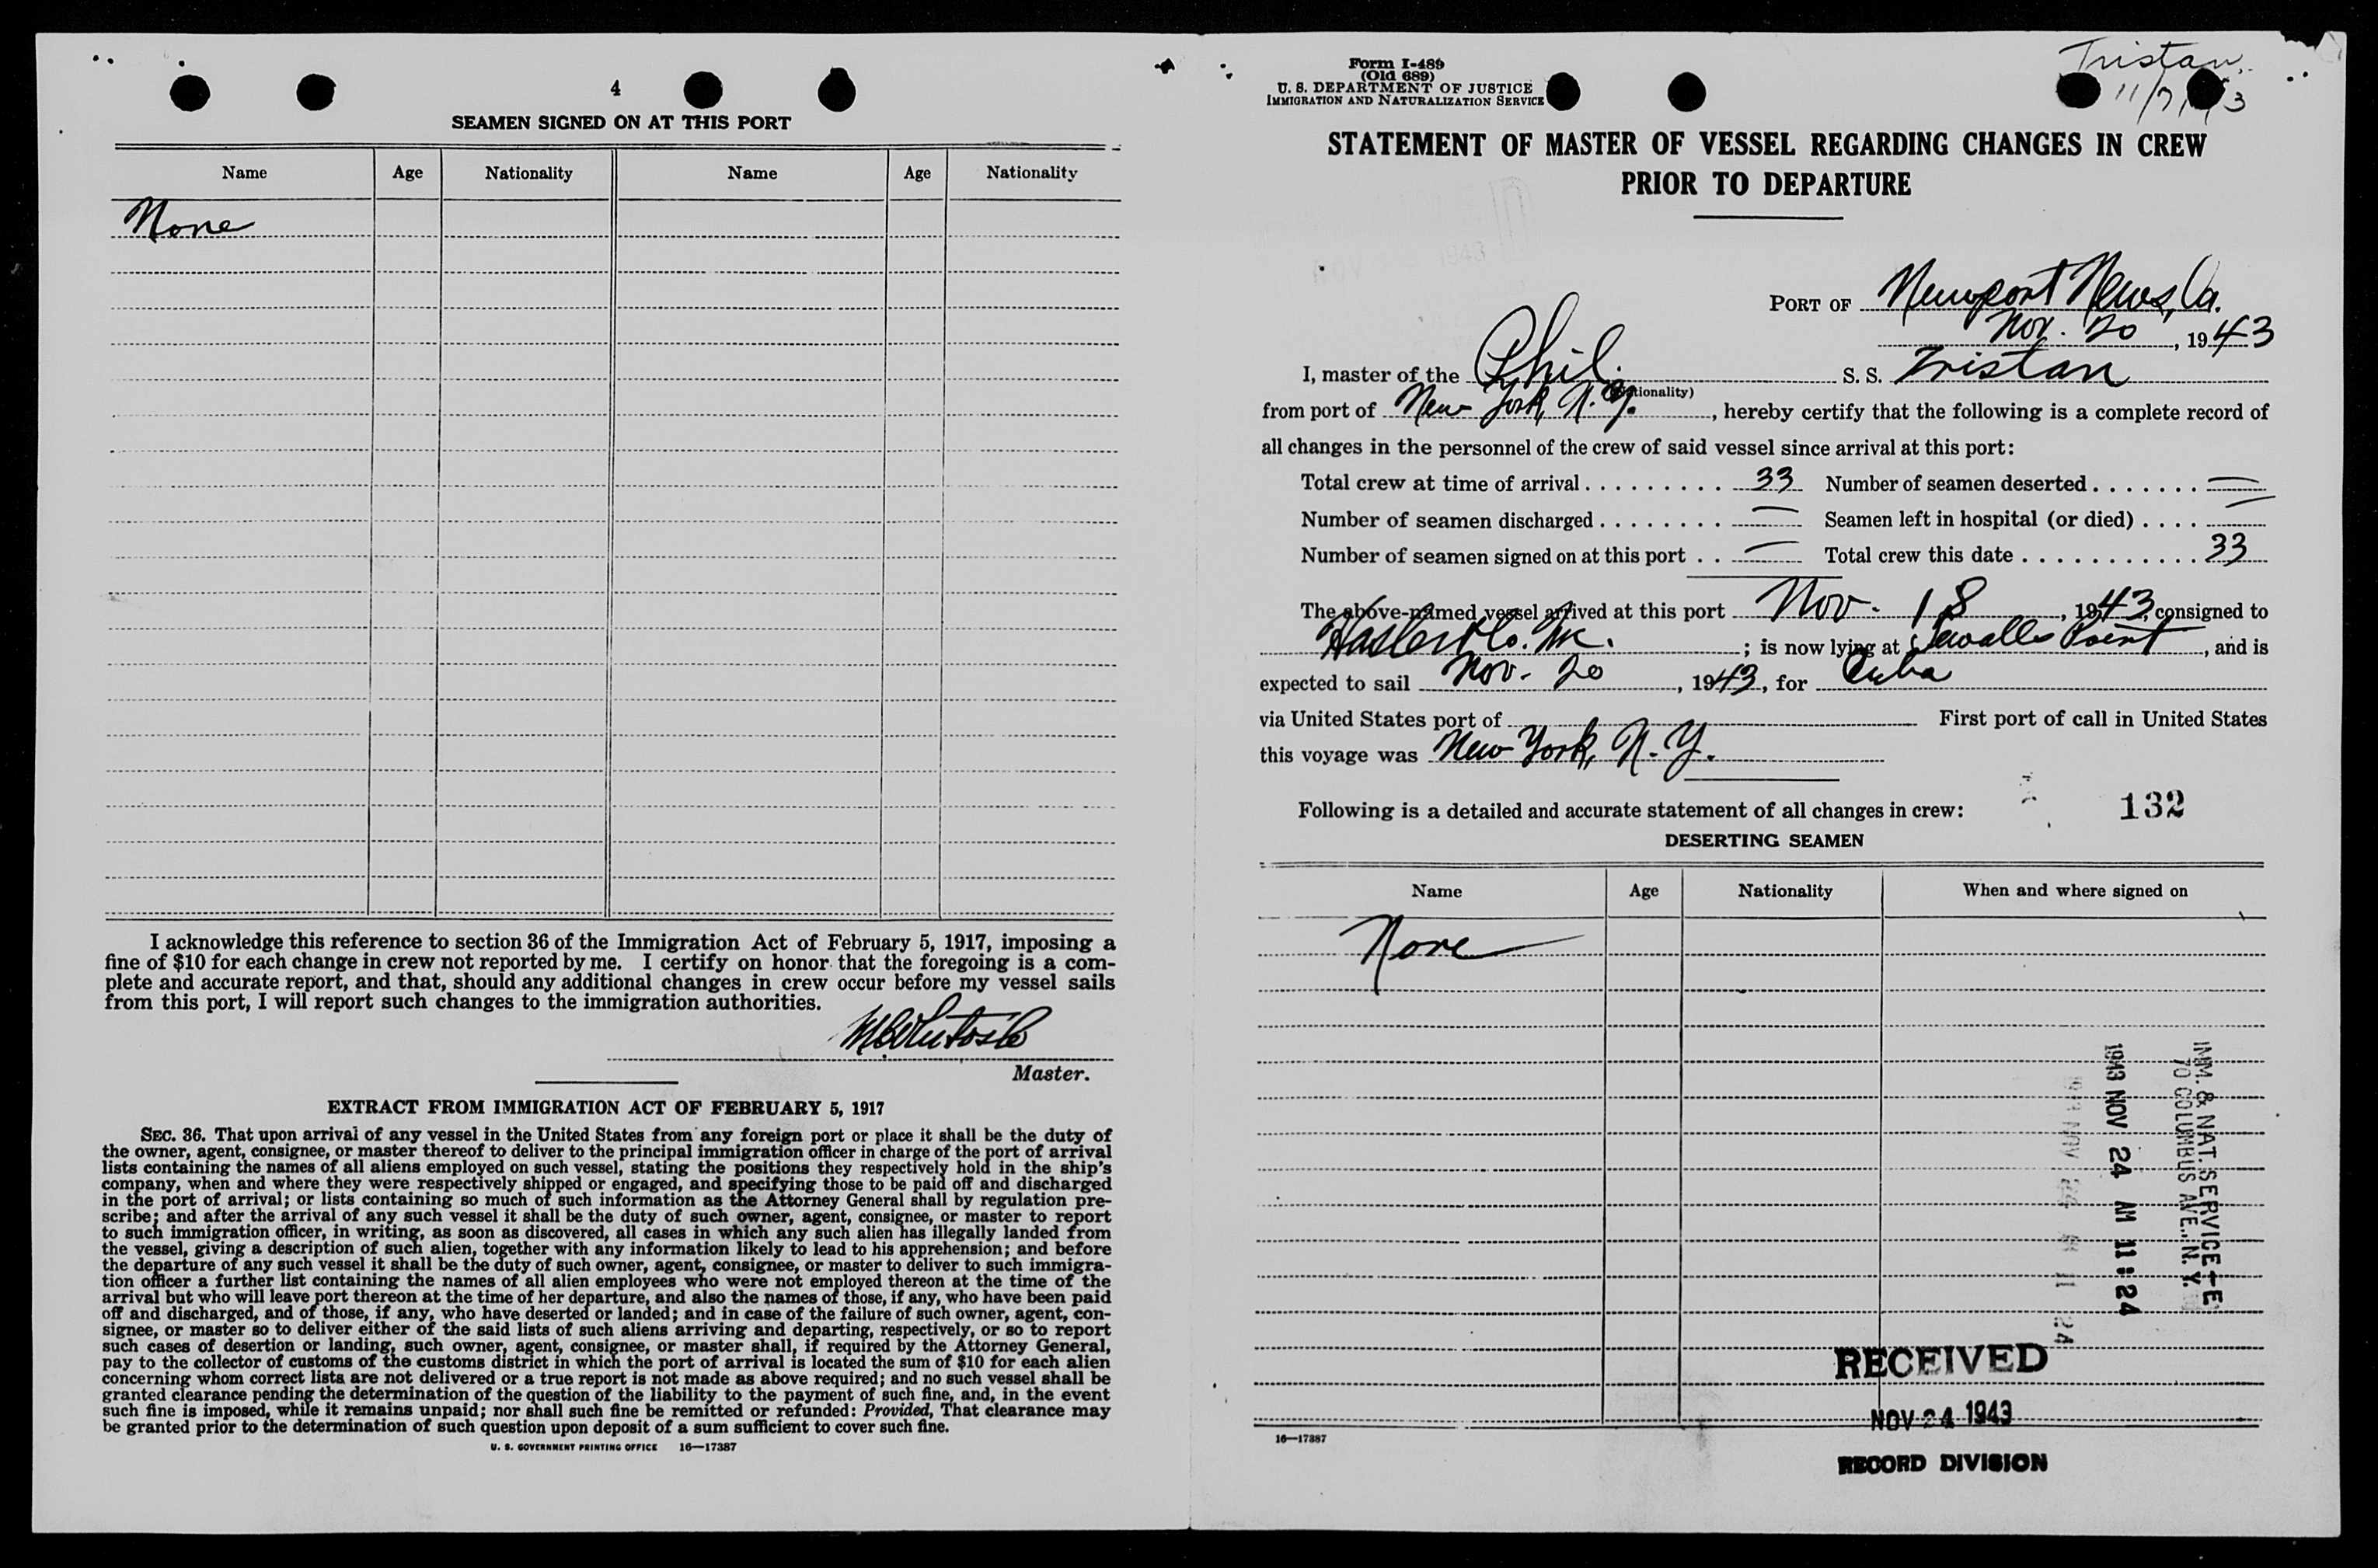 4
SEAMEN SIGNED ON AT THIS PORT
Name Age Nationality Name Age Nationality
None
I acknowledge this reference to section 36 of the Immigration Act of February 5, 1917, imposing a
fine of $10 for each change in crew not reported by me. I certify on honor that the foregoing is a com-
plete and accurate report, and that, should any additional changes in crew occur before my vessel sails
from this port, I will report such changes to the immigration authorities.
Master.
EXTRACT FROM IMMIGRATION ACT OF FEBRUARY 5, 1917
SEC. 36. That upon arrival of any vessel in the United States from any foreign port or place it shall be the duty of
the owner, agent, consignee, or master thereof to deliver to the principal immigration officer in charge of the port of arrival
lists containing the names of all aliens employed on such vessel, stating the positions they respectively hold in the ship's
company, when and where they were respectively shipped or engaged, and specifying those to be paid off and discharged
in the port of arrival; or lists containing so much of such information as the Attorney General shall by regulation pre-
scribe; and after the arrival of any such vessel it shall be the duty of such owner, agent, consignee, or master to report
to such immigration officer, in writing, as soon as discovered, all cases in which any such alien has illegally landed from
the vessel, giving a description of such alien, together with any information likely to lead to his apprehension; and before
the departure of any such vessel it shall be the duty of such owner, agent, consignee, or master to deliver to such immigra-
tion officer a further list containing the names of all alien employees who were not employed thereon at the time of the
arrival but who will leave port thereon at the time of her departure, and also the names of those, if any, who have been paid
off and discharged, and of those, if any, who have deserted or landed; and in case of the failure of such owner, agent, con-
signee, or master so to deliver either of the said lists of such aliens arriving and departing, respectively, or so to report
such cases of desertion or landing, such owner, agent, consignee, or master shall, if required by the Attorney General,
pay to the collector of customs of the customs district in which the port of arrival is located the sum of $10 for each alien
concerning whom correct lists are not delivered or a true report is not made as above required; and no such vessel shall be
granted clearance pending the determination of the question of the liability to the payment of such fine, and, in the event
such fine is imposed, while it remains unpaid; nor shall such fine be remitted or refunded: Provided, That clearance may
be granted prior to the determination of such question upon deposit of a sum sufficient to cover such fine.
U. S. GOVERNMENT PRINTING OFFICE 16—17387
Form I-489
(Old 689)
U. S. DEPARTMENT OF JUSTICE
IMMIGRATION AND NATURALIZATION SERVICE
Tristan
STATEMENT OF MASTER OF VESSEL REGARDING CHANGES IN CREW
PRIOR TO DEPARTURE
PORT OF Newport News, Va.
Nov. 20, 1943
I, master of the Phil. S. S. Tristan
(Nationality)
from port of New York, N. Y., hereby certify that the following is a complete record of
all changes in the personnel of the crew of said vessel since arrival at this port:
Total crew at time of arrival . . . . . . . . . . 33 Number of seamen deserted . . . . . . . —
Number of seamen discharged . . . . . . . . — Seamen left in hospital (or died) . . . . —
Number of seamen signed on at this port . . — Total crew this date . . . . . . . . . . . 33
The above-named vessel arrived at this port Nov. 18, 1943, consigned to
Co. Inc.; is now lying at Sewalls Point, and is
expected to sail Nov. 20, 1943, for Cuba
via United States port of First port of call in United States
this voyage was New York, N. Y.
Following is a detailed and accurate statement of all changes in crew: 132
DESERTING SEAMEN
Name Age Nationality When and where signed on
None
IMM. & NAT. SERVICE
70 COLUMBUS AVE. N. Y.
1943 NOV 24 AM 11:24
RECEIVED
NOV 24 1943
RECORD DIVISION
16—17387